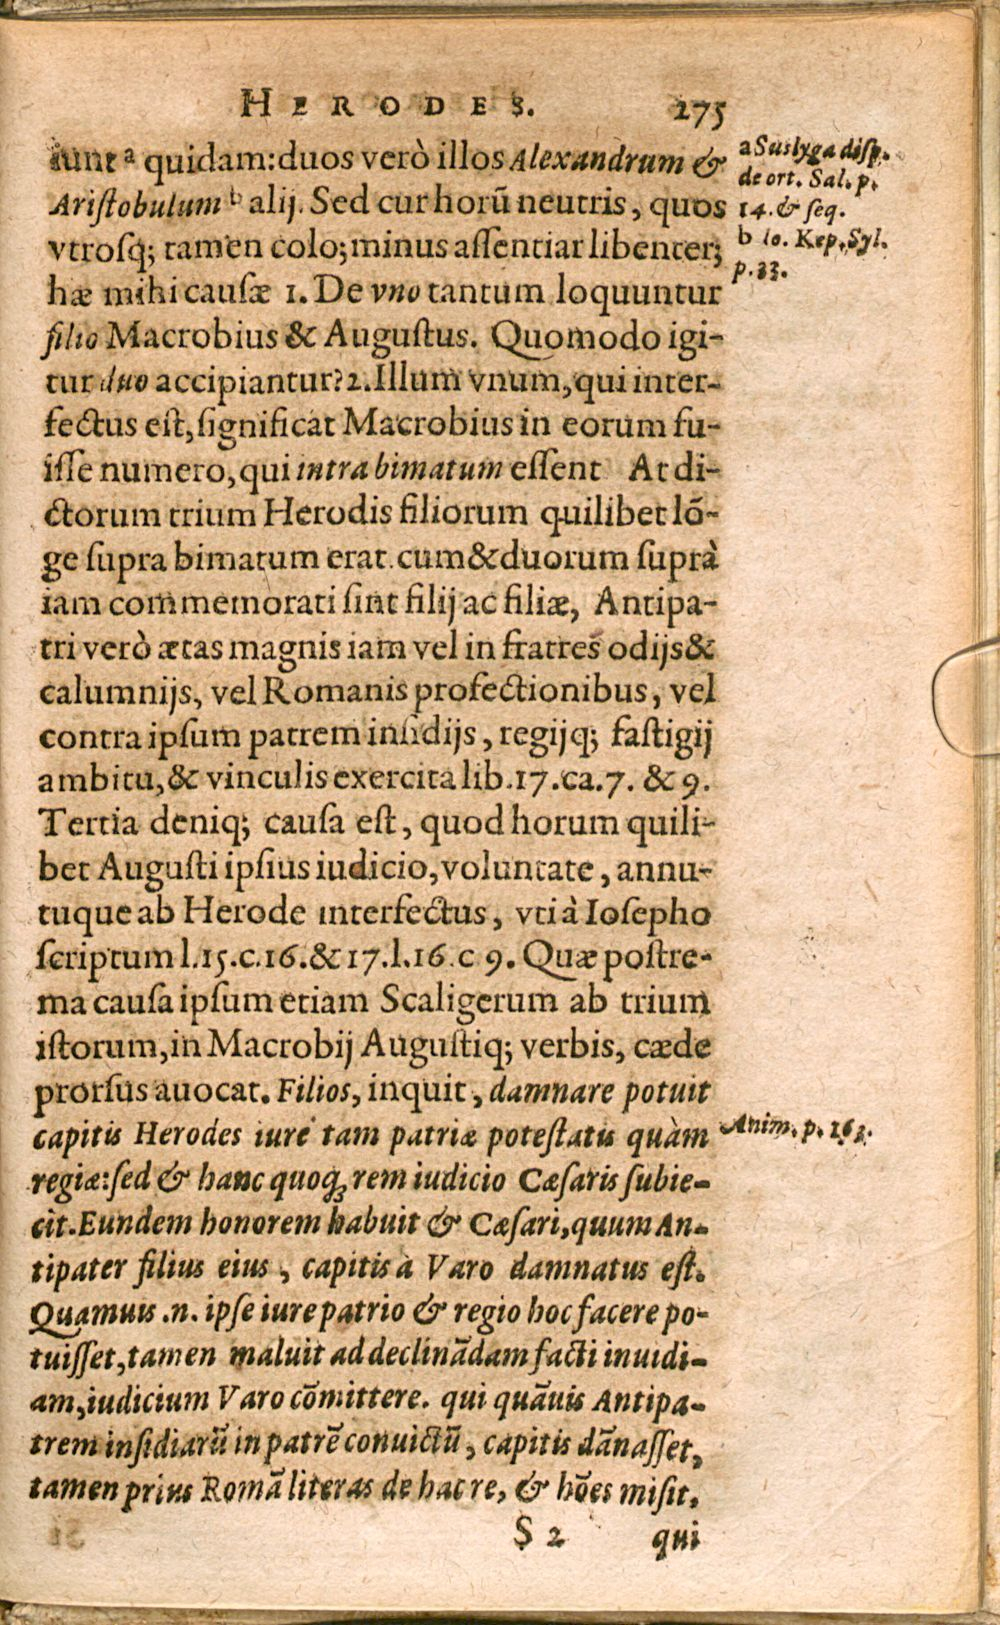 HERODES. 275
iunt a quidam:duos verò illos Alexandrum &
Aristobulum b alij. Sed cur horū neutris, quos
vtrosq; tamen colo;minus assentiar libenter;
hæ mihi causæ 1. De vno tantum loquuntur
filio Macrobius & Augustus. Quomodo igi-
tur duo accipiantur? 2. Illum vnum,qui inter-
fectus est,significat Macrobius in eorum fu-
isse numero,qui intra bimatum essent At di-
ctorum trium Herodis filiorum quilibet lō-
ge supra bimatum erat. cum & duorum suprà
iam commemorati sint filij ac filiæ, Antipa-
tri verò ætas magnis iam vel in fratres odijs &
calumnijs, vel Romanis profectionibus, vel
contra ipsum patrem insidijs, regijq; fastigij
ambitu,& vinculis exercita lib.17.ca.7. & 9.
Tertia deniq; causa est, quod horum quili-
bet Augusti ipsius iudicio,voluntate, annu-
tuque ab Herode interfectus, vti à Iosepho
scriptum l.15.c.16.&17.l.16.c 9. Quæ postre-
ma causa ipsum etiam Scaligerum ab trium
istorum,in Macrobij Augustiq; verbis, cæde
prorsus auocat. Filios, inquit, damnare potuit
capitis Herodes iure tam patriæ potestatis quàm
regiæ:sed & hanc quoq; rem iudicio Cæsaris subie-
cit.Eundem honorem habuit & Cæsari,quum An-
tipater filius eius, capitis à Varo damnatus est.
Quamuis .n. ipse iure patrio & regio hoc facere po-
tuisset,tamen maluit ad declinādam facti inuidi-
am,iudicium Varo cōmittere. qui quāuis Antipa-
trem insidiarū in patrē conuictū, capitis dānasset,
tamen prius Romā literas de hac re, & hōes misit.
S 2 qui
a Suslyga disp.
de ort. Sal. p.
14. & seq.
b Io. Kep. Syl.
p. 23.
Anim. p. 163.